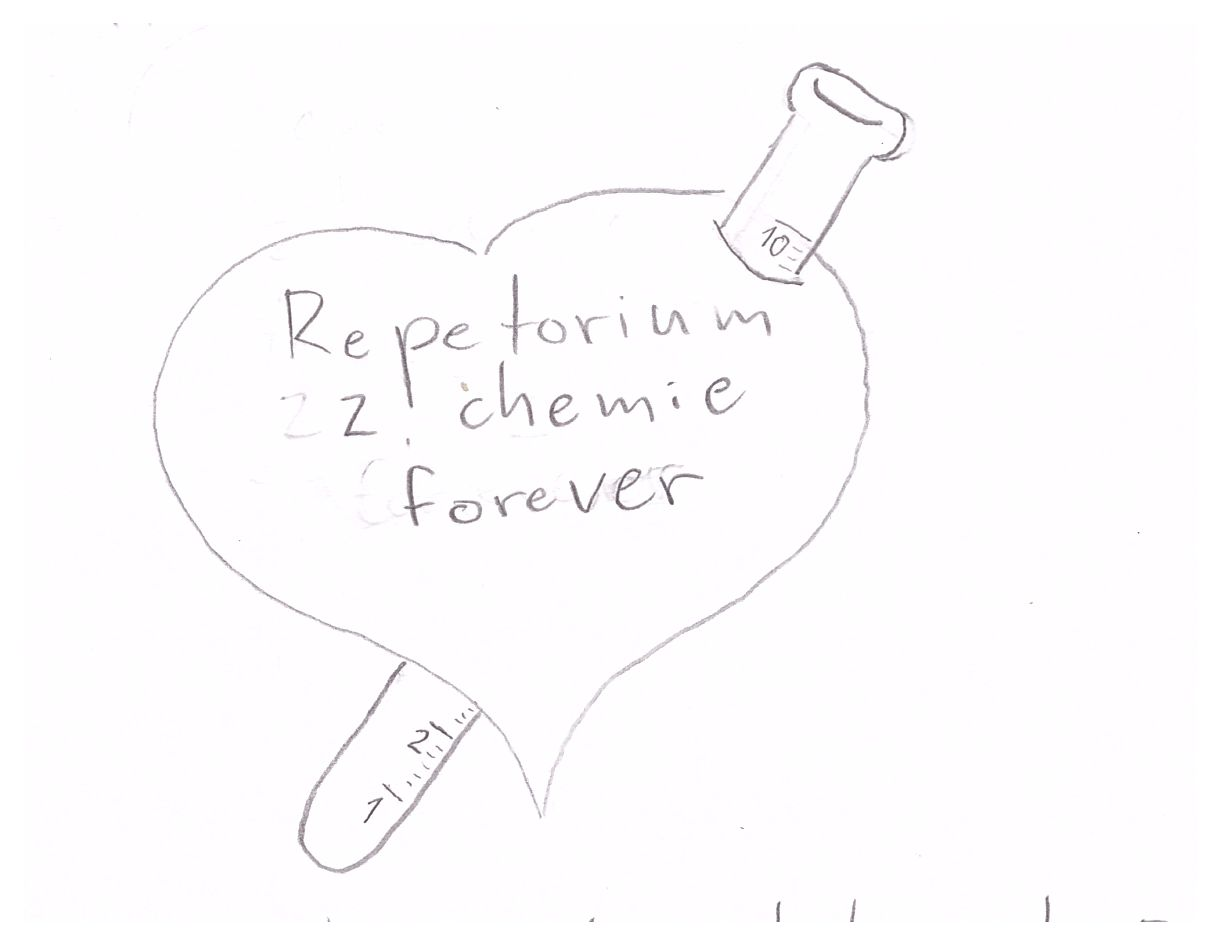 10
Repetorium
z! chemie
forever
2
1